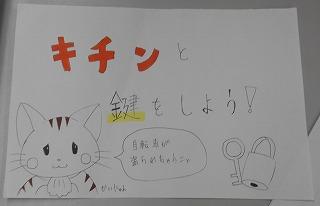 キチンと
鍵をしよう!
自転車が
盗られちゃうニャ